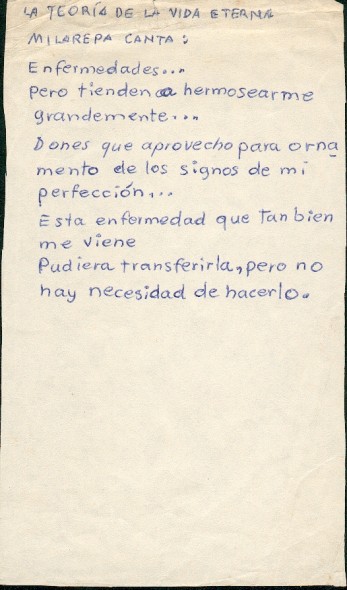 LA TEORÍA DE LA VIDA ETERNA
MILAREPA CANTA:
Enfermedades...
Pero tienden a hermosearme
grandemente...
Dones que aprovecho para orna
mento de los signos de mi
perfección...
Esta enfermedad que tan bien
me viene
Pudiera transferirla, pero no
hay necesidad de hacerlo.